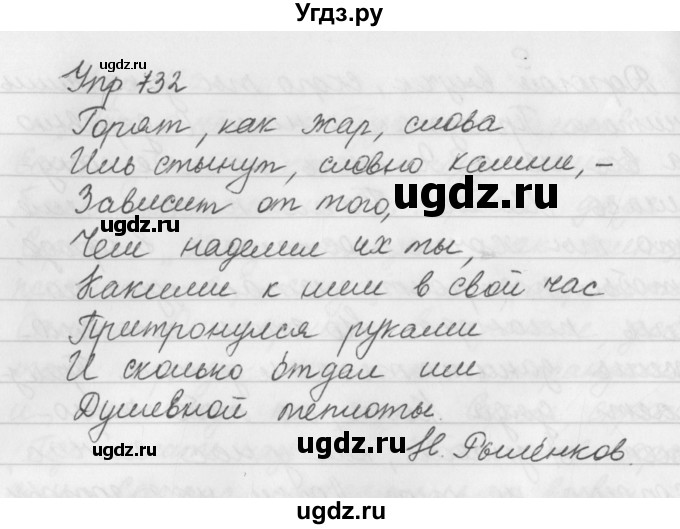 Угдз.ру
ugdz.ru
Упр 732
ugdz.ru
Горят, как жар, слова
Иль стынут, словно камни, –
Зависит от того,
ugdz.ru
Чем наделил их ты,
Какими к ним в свой час
Притронулся руками
И сколько отдал им
Душевной теплоты.
ugdz.ru
ugdz.ru
Н. Рыленков.
ugdz.ru